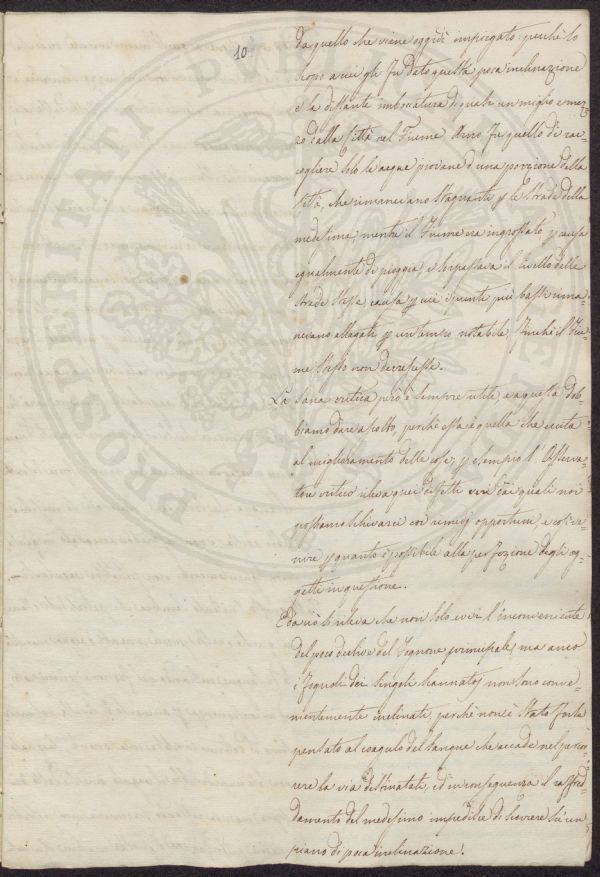 10
da quello che viene oggidì impiegato: perchè lo
scopo a cui gli fu dato questa poca inclinazione
e la distante imboccatura di quasi un miglio e mez-
zo dalla Città nel Fiume Arno fu quello di rac-
cogliere solo le acque piovane d'una porzione della
Città, che rimanevano stagnanti p le Strade della
medesima, mentre il Fiume era ingrossato p causa
egualmente di pioggia, e sorpassava il livello delle
strade stesse, causa p cui i punti più bassi rima-
nevano allagati p un tempo notabile, finchè il Fiu-
me stesso non decrescesse.
La sana critica però è sempre utile, e a questa dob-
biamo dare ascolto, perchè essa è quella che eccita
al miglioramento delle cose; p esempio l'Osserva-
tore critico rileva quei difetti dai quali noi
possiamo schivarci coi rimedj opportuni, e così ve-
nire p quanto è possibile alla perfezione degli og-
getti in questione.
E da ciò si rileva che non solo evvi l'inconveniente
del poco declive del Fognone principale, ma anco
i Fognoli dei singoli scannatoj non sono conve-
nientemente inclinati, perchè non è stato forse
pensato al coagulo del sangue che accade nel percor-
rere la via destinatali, ed in conseguenza il raffred-
damento del medesimo impedisce di scorrere su un
piano di poca inclinazione.
PROSPERITATI PUBLICAE